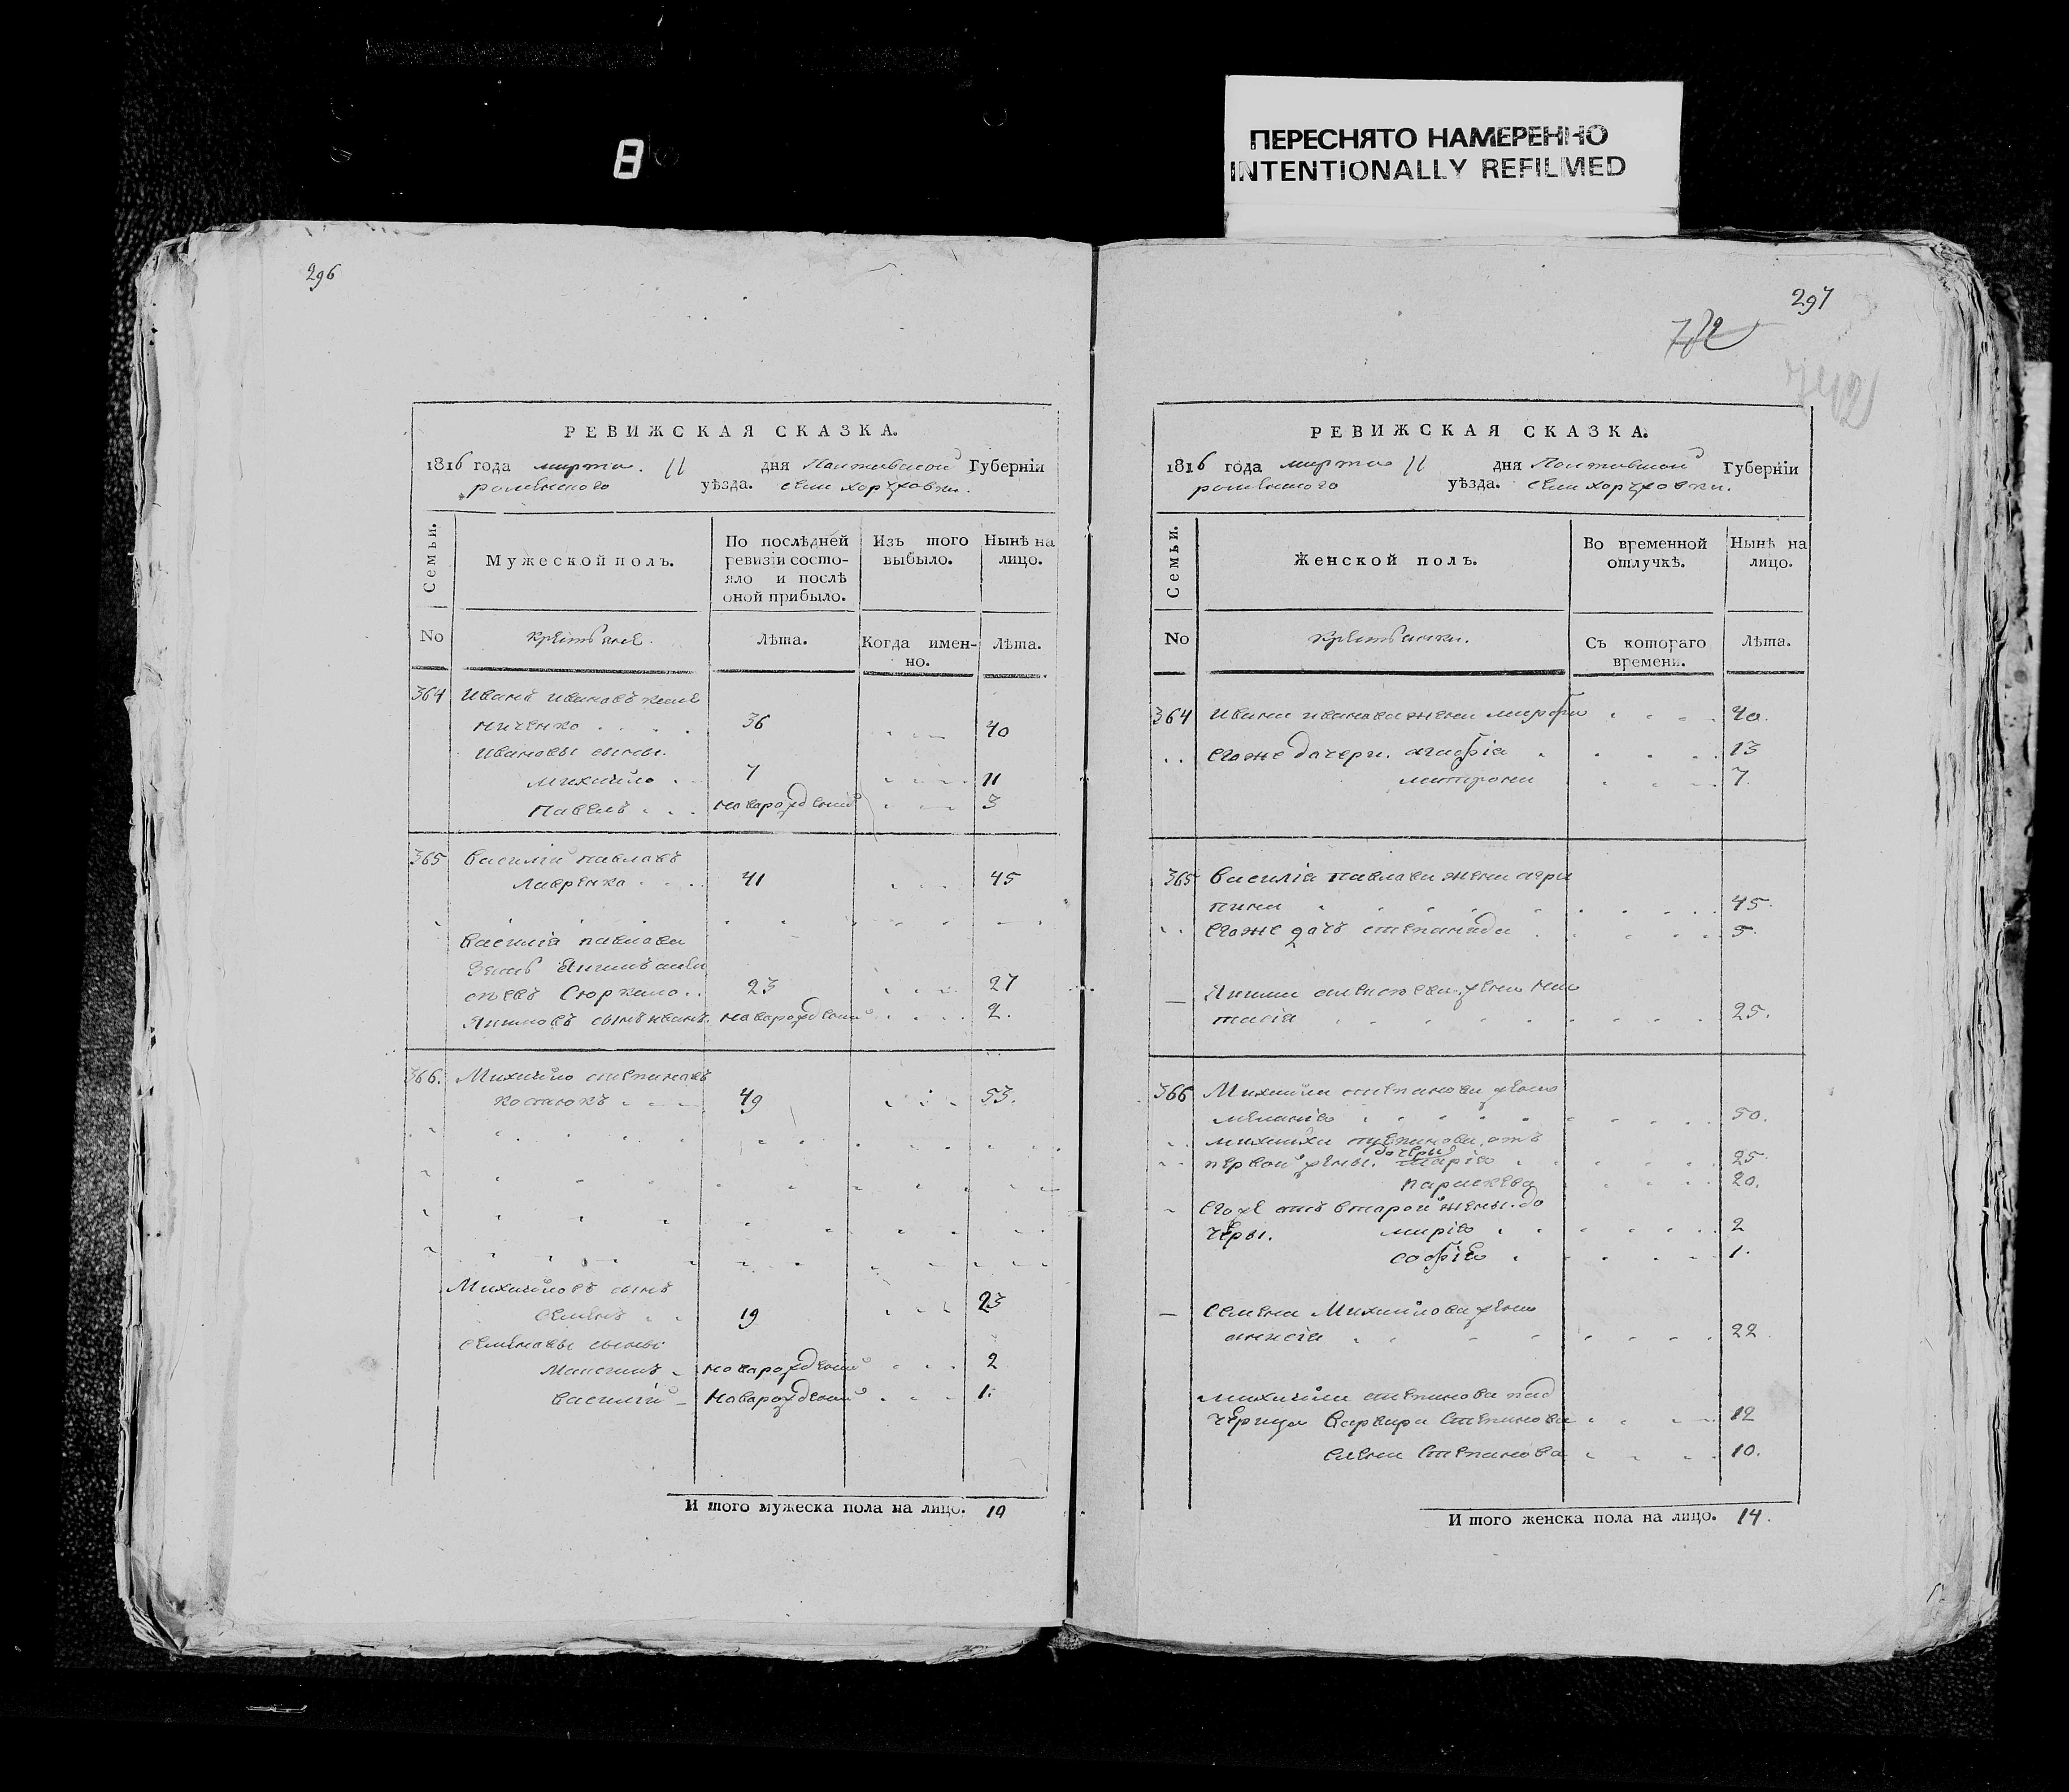 8
ПЕРЕСНЯТО НАМЕРЕННО
INTENTIONALLY REFILMED
296
РЕВИЖСКАЯ СКАЗКА.
1816 года марта 11 дня Полтавской Губернiи
роменского уѣзда. села хоружовки.
Семьи.
Мужеской полъ.
По послѣдней ревизiи состояло и послѣ оной прибыло.
Изъ того выбыло.
Нынѣ на лицо.
No
крестьяне.
Лѣта.
Когда именно.
Лѣта.
364 Иванъ ивановъ
ниченко 36 40
Ивановы сыны.
михайло 7 11
Павелъ новорожденный 3
365 Василий павловъ
Лавренко 41 45
василiя павлова
зять Якимъ
Сюркало 23 27
Якимовъ сынъ иванъ новорожденный 2.
366. Михайло степановъ
костюкъ 49 53.
Михайловъ сынъ
Семенъ 19 23
семеновы сыны
Максимъ новорожденный 2
василий новорожденный 1.
И того мужеска пола на лицо. 10
297
742
РЕВИЖСКАЯ СКАЗКА.
1816 года марта 11 дня Полтавской Губернiи
роменского уѣзда. села хоружовки.
Семьи.
Женской полъ.
Во временной отлучкѣ.
Нынѣ на лицо.
No
крестьянки.
Съ котораго времени.
Лѣта.
364 Ивана иванова жена марфа 40.
его же дочери. агафiя 13
матрона 7.
365 Василiя павлова жена агри
пина 45.
его же дочь степанида 5.
Якима жена ната
лiя 25.
366 Михайла степанова жена
меланiя 50.
михайла степанова отъ
первой жены. дочеры марiя 25.
параскева 20.
его же отъ второй жены. до
черы. марiя 2
софiя 1.
Семена Михайлова жена
анисiя 22
михайла степанова пад
черица варвара степанова 12
елена степанова 10.
И того женска пола на лицо. 14.